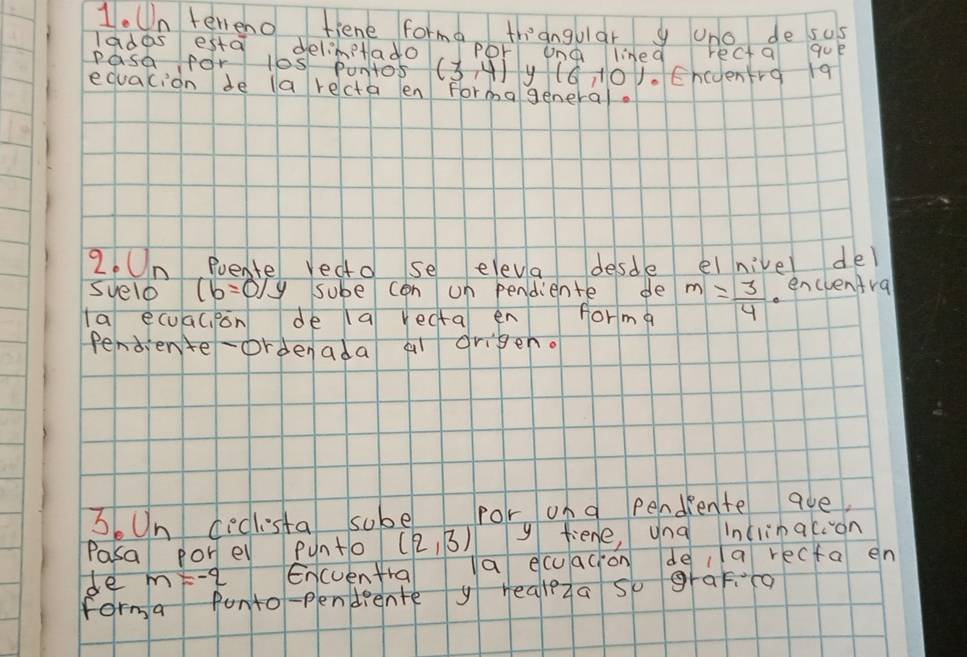 1. Un terreno tiene forma triangular y uno de sus
lados esta delimitado por una linea recta que
Pasa por los puntos (3,4) y (6,10). Encuentra la
ecuacion de la recta en forma general.
2. Un Puente recto se eleva desde el nivel del
suelo (b=0) y sube con un pendiente de m = 3/4. encuentra
la ecuación de la recta en forma
Pendiente-Ordenada al origen.
3. Un ciclista sube por una pendiente que,
Pasa por el punto (2,3) y tiene, una Inclinación
de m=-2 Encuentra la ecuacion de la recta en
forma Punto-pendiente y realiza su grafica